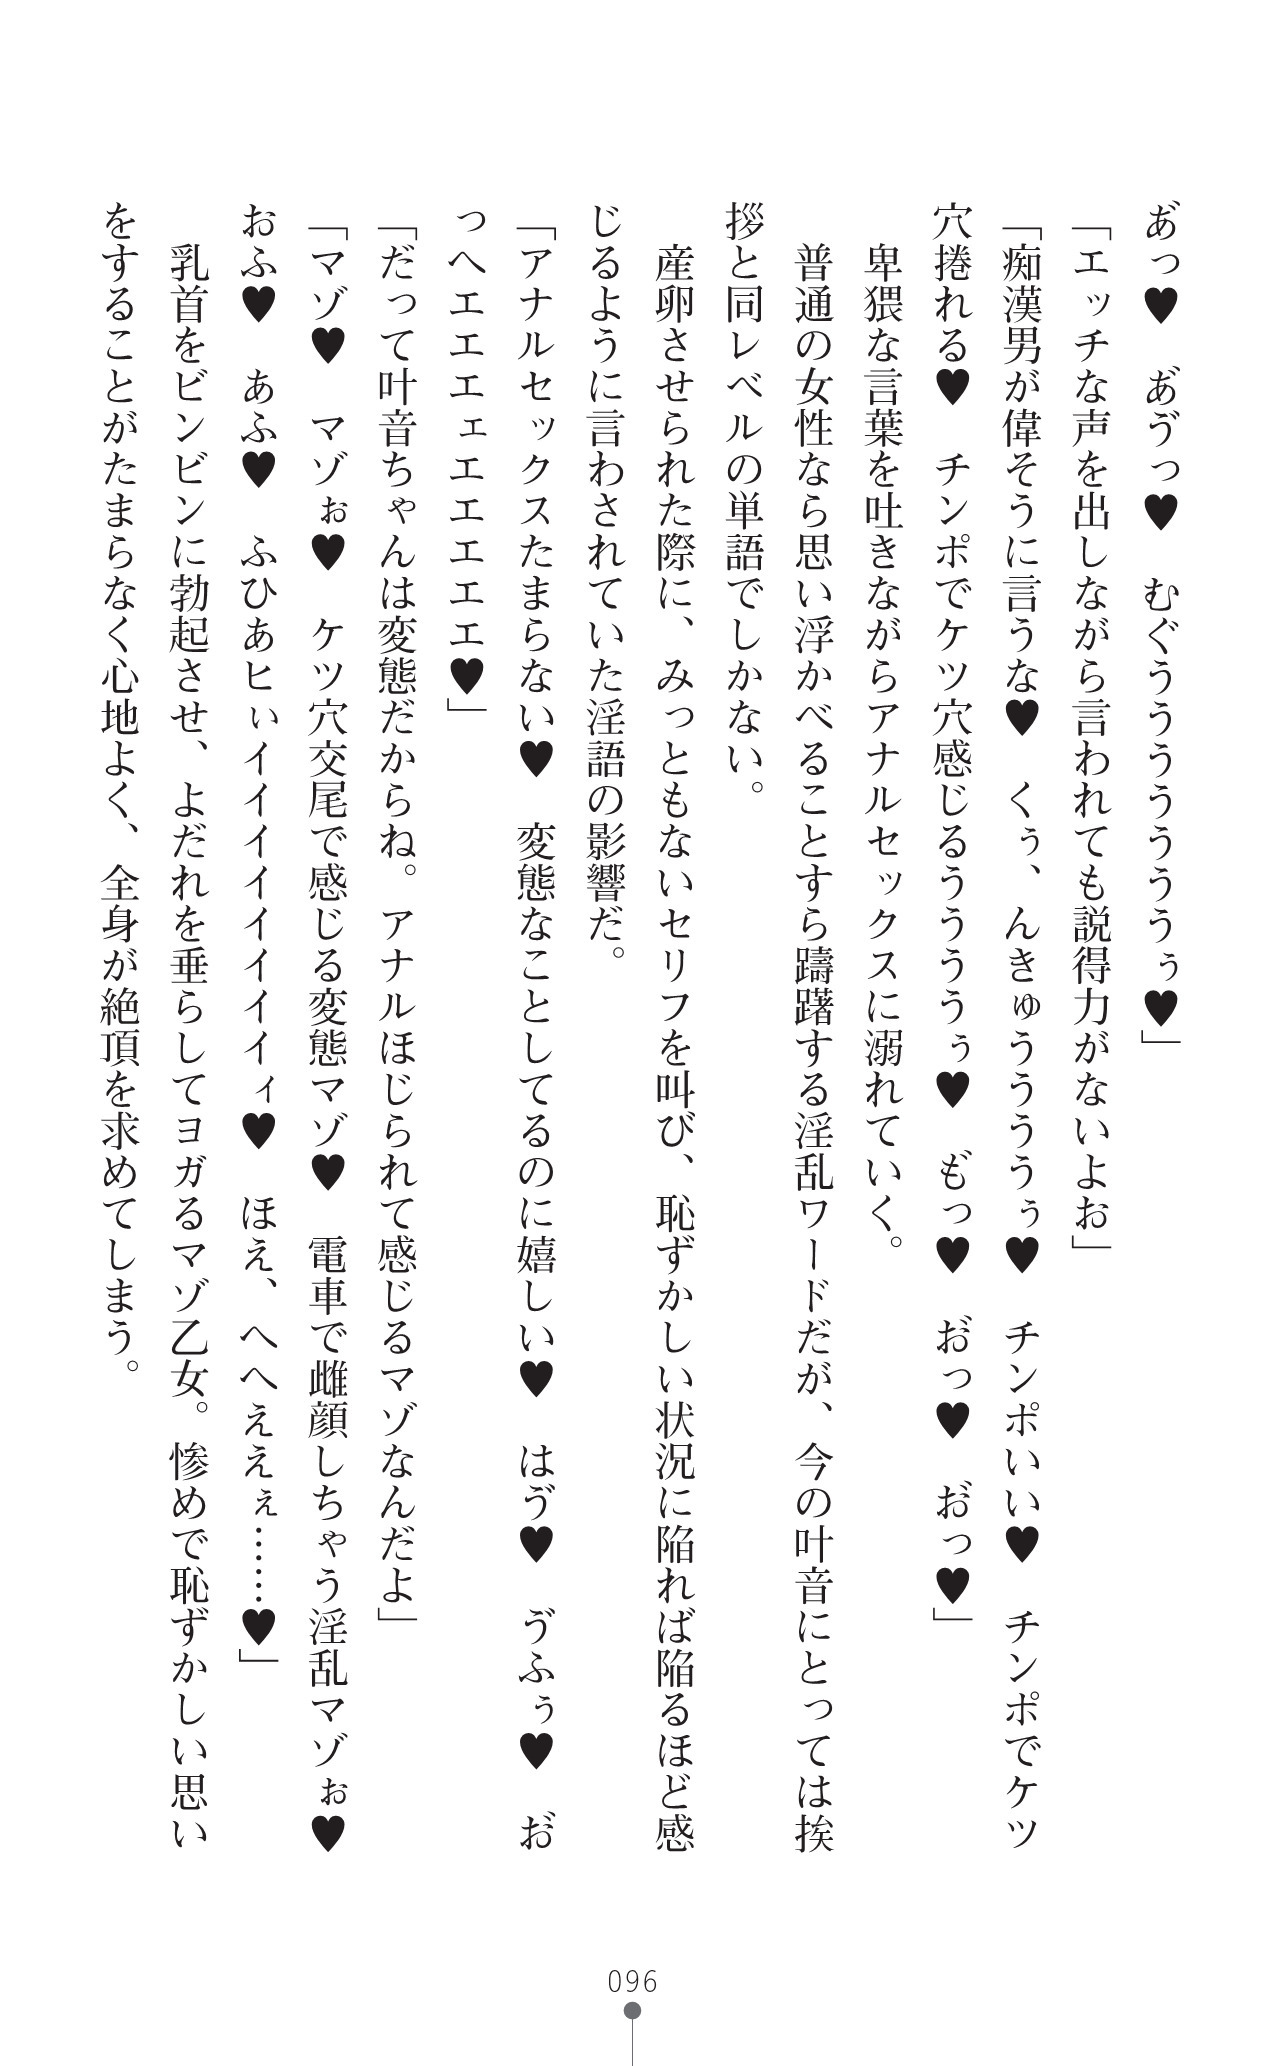 あ゛っ♥　あ゛ゔっ♥　むぐぅうううううううぅ♥」
「エッチな声を出しながら言われても説得力がないよお」
「痴漢男が偉そうに言うな♥　くぅ、んきゅうううううぅ♥　チンポいい♥　チンポでケツ
穴捲れる♥　チンポでケツ穴感じるうううううぅ♥　も゛っ♥　お゛っ♥　お゛っ♥」
　卑猥な言葉を吐きながらアナルセックスに溺れていく。
　普通の女性なら思い浮かべることすら躊躇する淫乱ワードだが、今の叶音にとっては挨
拶と同レベルの単語でしかない。
　産卵させられた際に、みっともないセリフを叫び、恥ずかしい状況に陥れば陥るほど感
じるように言わされていた淫語の影響だ。
「アナルセックスたまらない♥　変態なことしてるのに嬉しい♥　はゔ♥　ゔふぅ♥　お゛
っへエエエェエエエエエ♥」
「だって叶音ちゃんは変態だからね。アナルほじられて感じるマゾなんだよ」
「マゾ♥　マゾぉ♥　ケツ穴交尾で感じる変態マゾ♥　電車で雌顔しちゃう淫乱マゾぉ♥
おふ♥　あふ♥　ふひあヒぃイイイイイイイイィ♥　ほえ、へへええぇ……♥」
　乳首をビンビンに勃起させ、よだれを垂らしてヨガるマゾ乙女。惨めで恥ずかしい思い
をすることがたまらなく心地よく、全身が絶頂を求めてしまう。
096